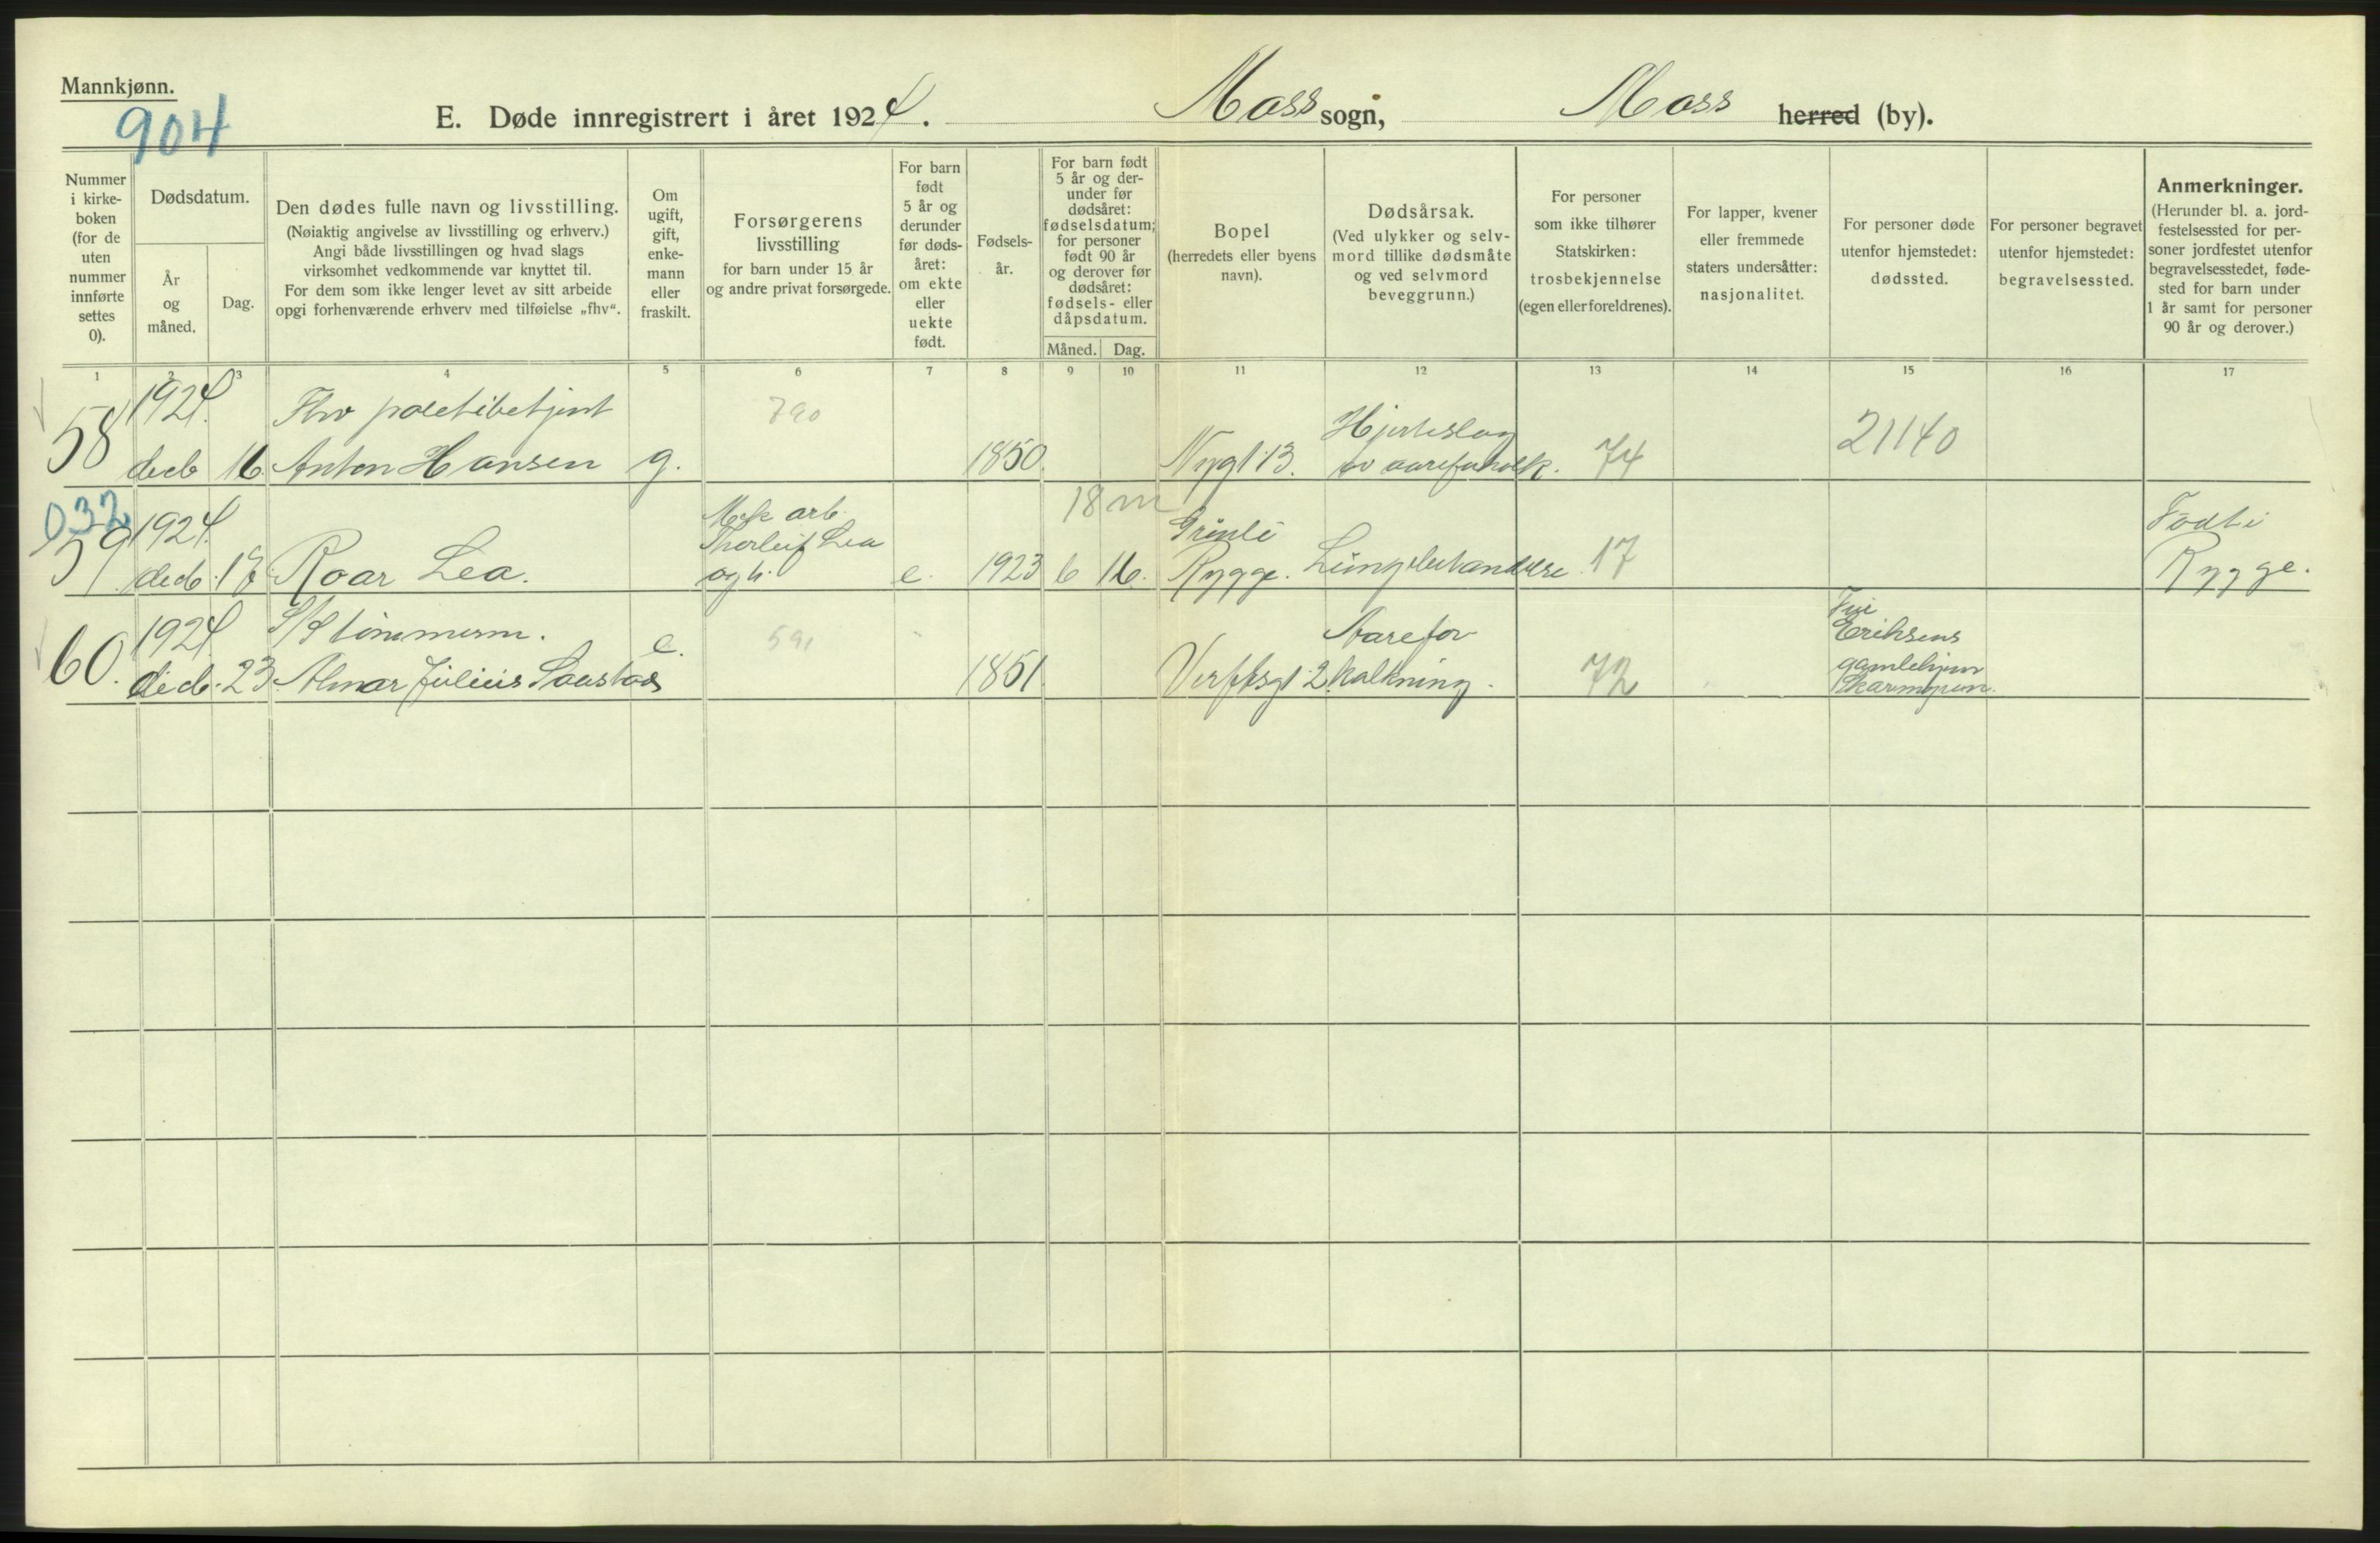 Mannkjønn.
904
E. Døde innregistrert i året 1924. Moss sogn, Moss herred (by).
Nummer i kirke-boken (for de uten nummer innførte settes 0).
Dødsdatum.
År og måned.
Dag.
Den dødes fulle navn og livsstilling.
(Nøiaktig angivelse av livsstilling og erhverv.)
Angi både livsstillingen og hvad slags
virksomhet vedkommende var knyttet til.
For dem som ikke lenger levet av sitt arbeide
opgi forhenværende erhverv med tilføielse „fhv“.
Om ugift, gift, enke-mann eller fraskilt.
Forsørgerens
livsstilling
for barn under 15 år
og andre privat forsørgede.
For barn født 5 år og derunder før døds-året: om ekte eller uekte født.
Fødsels-år.
For barn født 5 år og der-under før dødsåret: fødselsdatum; for personer født 90 år og derover før dødsåret: fødsels- eller dåpsdatum.
Måned. Dag.
Bopel
(herredets eller byens
navn).
Dødsårsak.
(Ved ulykker og selv-
mord tillike dødsmåte
og ved selvmord
beveggrunn.)
For personer
som ikke tilhører
Statskirken:
trosbekjennelse
(egen eller foreldrenes).
For lapper, kvener
eller fremmede
staters undersåtter:
nasjonalitet.
For personer døde
utenfor hjemstedet:
dødssted.
For personer begravet
utenfor hjemstedet:
begravelsessted.
Anmerkninger.
(Herunder bl. a. jord-
festelsessted for per-
soner jordfestet utenfor
begravelsesstedet, føde-
sted for barn under
1 år samt for personer
90 år og derover.)
1 2 3 4 5 6 7 8 9 10 11 12 13 14 15 16 17
1924. Fhv politibetjent 790 Hjerteslag 21140
58 decb 16. Anton Hansen g. 1850. Nygt 13. av aareforkalk. 74
032 1924. arb. 18 m Grinli Født i
Thorleif Lea
59 decb. 18 Roar Lea. og h. e. 1923 6 16. Rygge. Lungebetændelse 17 Rygge.
1924. S/S tømmerm. e. 591 Aarefor Eriksens
gamlehjem
60. decb. 23 Almar Julius 1851. Verftsgt 2 kalkning. 72